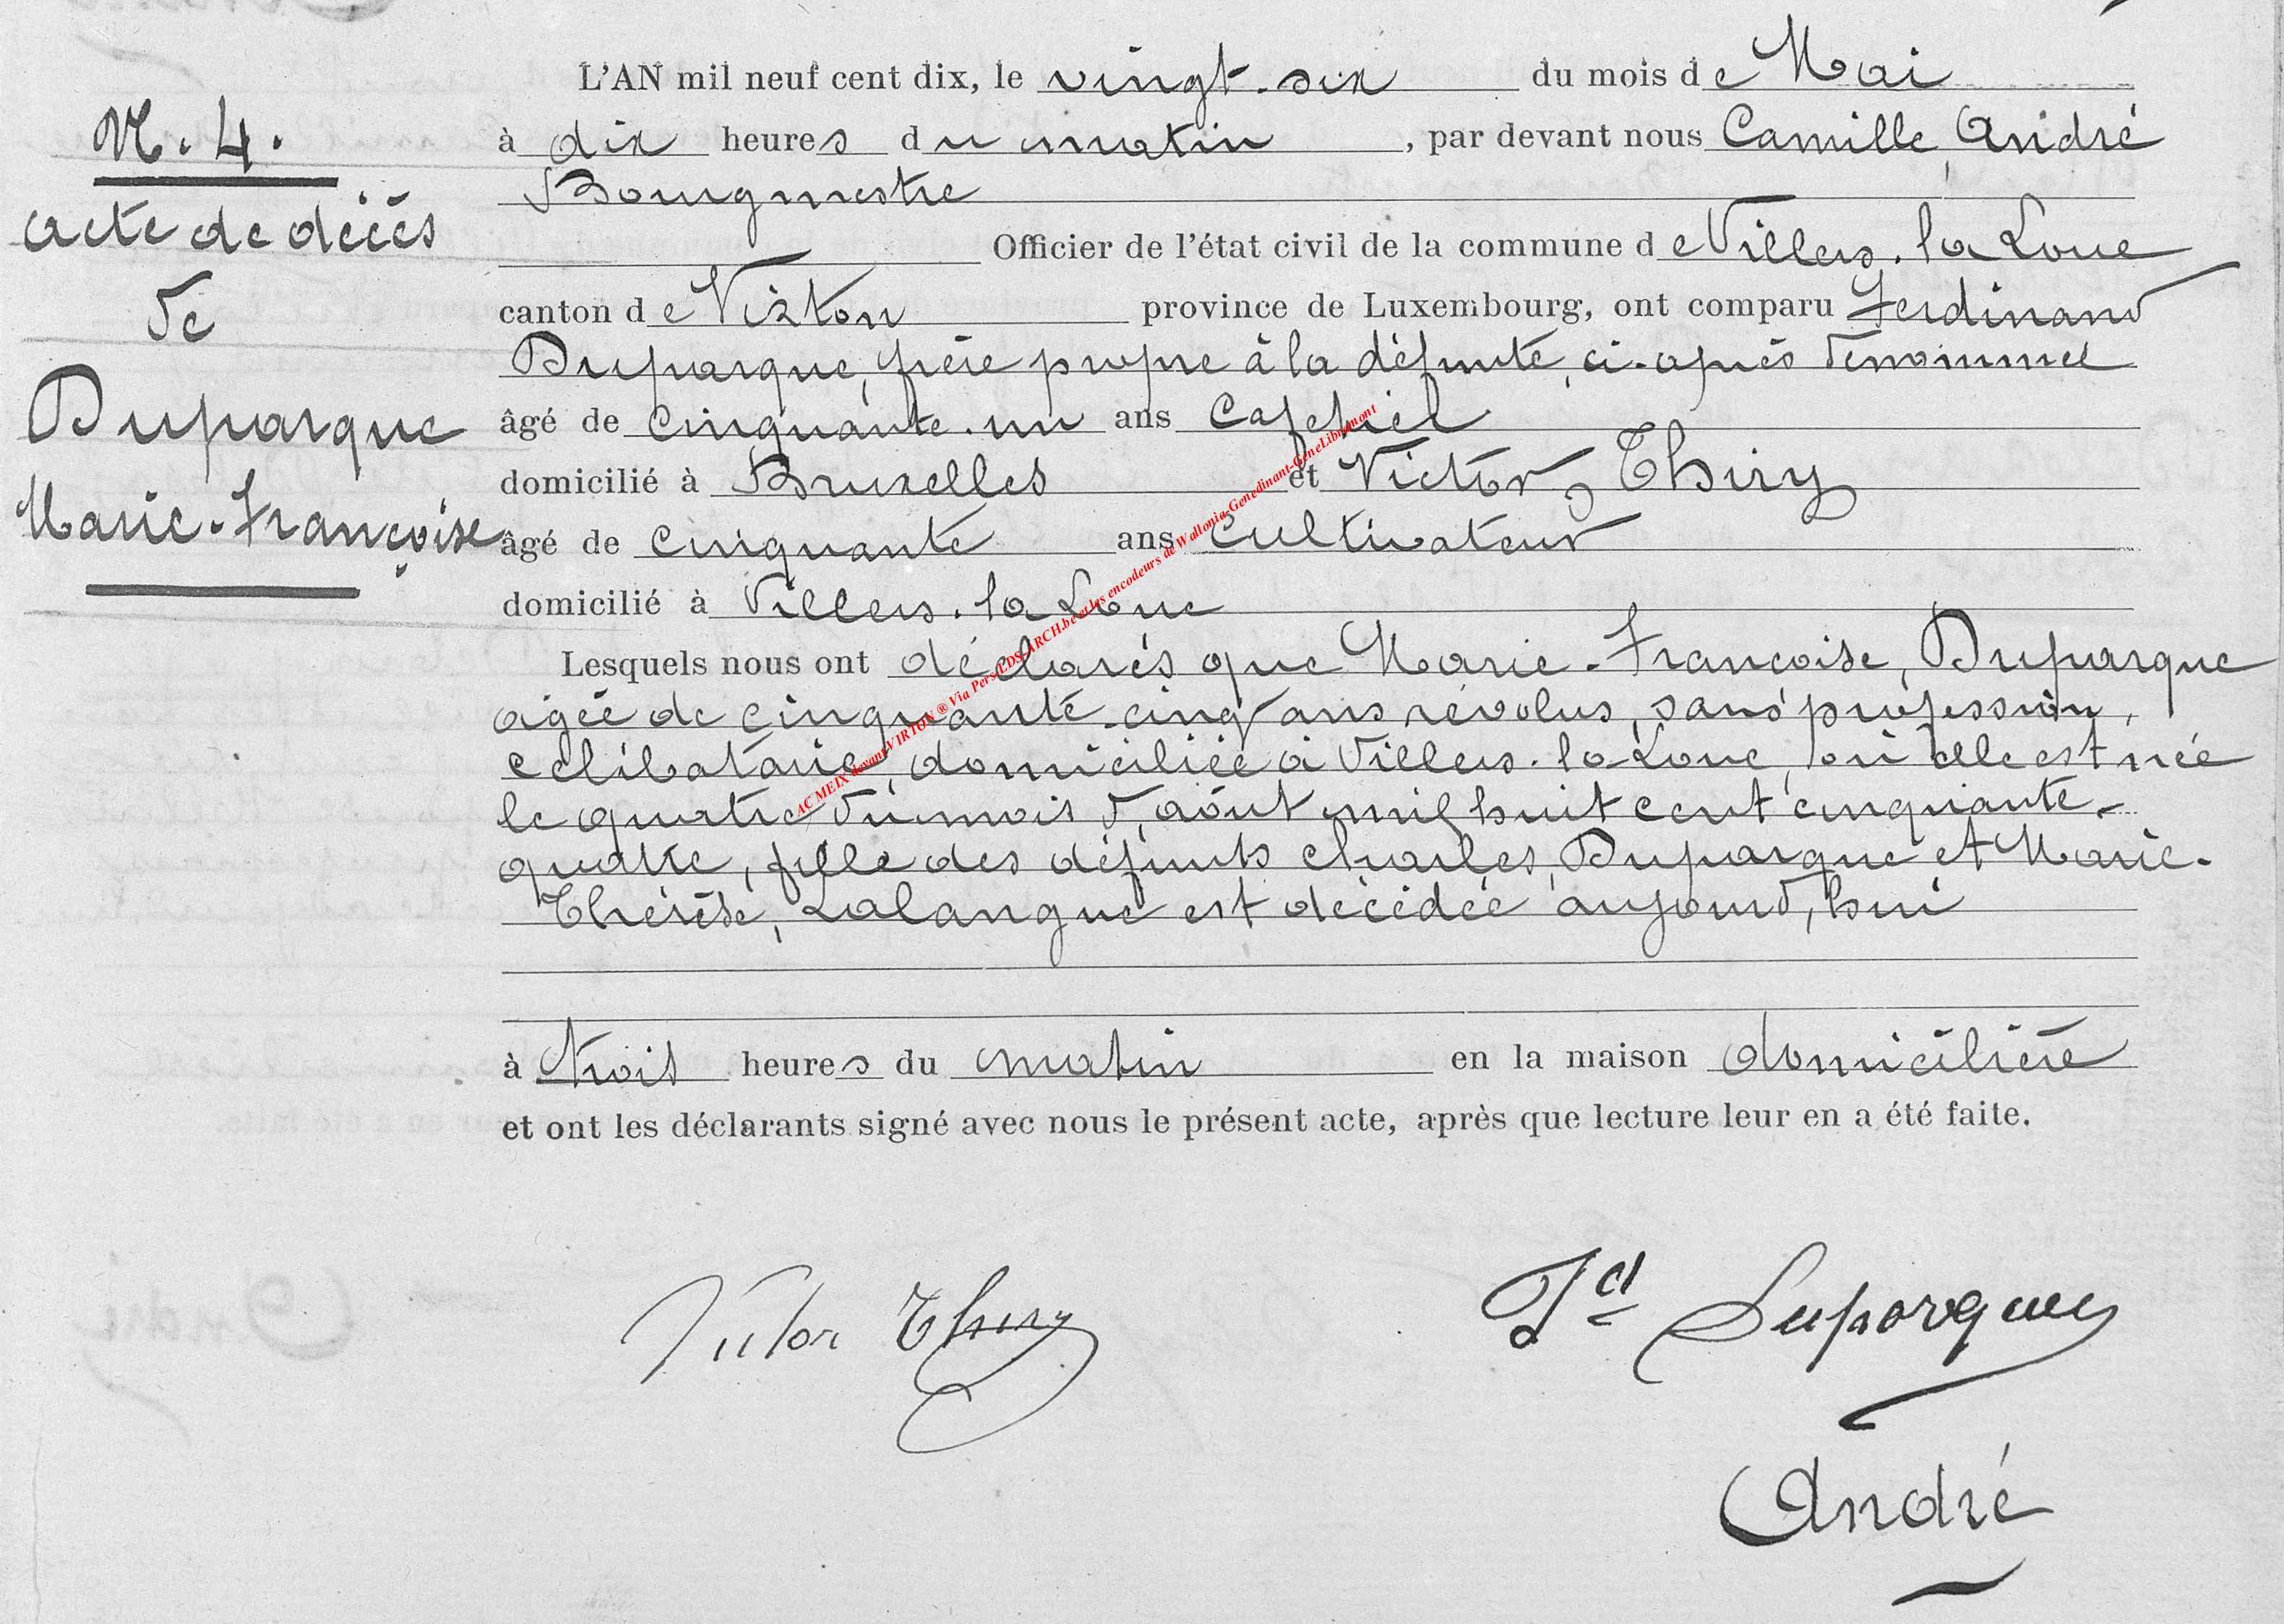 L'AN mil neuf cent dix, le vingt-six du mois de Mai
N. 4.
à dix heures du matin, par devant nous Camille, André
Bourgmestre
acte de décès
Officier de l'état civil de la commune de Villers-la-Loue
de
canton de Virton province de Luxembourg, ont comparu Ferdinand
Duparque, frère propre à la défunte, ci-après dénommé
Duparque
âgé de cinquante-un ans
domicilié à Bruxelles et Victor, Thiry
Marie-Françoise
âgé de cinquante ans cultivateur
domicilié à Villers-la-Loue
Lesquels nous ont déclarés que Marie-Francoise, Duparque
agée de cinquante-cinq ans révolus, sans profession,
celibataire, domiciliée à Villers-la-Loue, où elle est née
le quatre du mois d,août mil huit cent cinquante-
quatre, fille des défunts Charles, Duparque et Marie-
Thérèse, Lalangue est décédée aujourd,hui
à trois heures du matin en la maison domicilière
et ont les déclarants signé avec nous le présent acte, après que lecture leur en a été faite.
Victor Thiry
Fd Duparque
André
AC MEIX devant VIRTON ® Via Pers/LDS-ARCH.be et les encodeurs de Wallonia-Genedinant-GeneLibramont